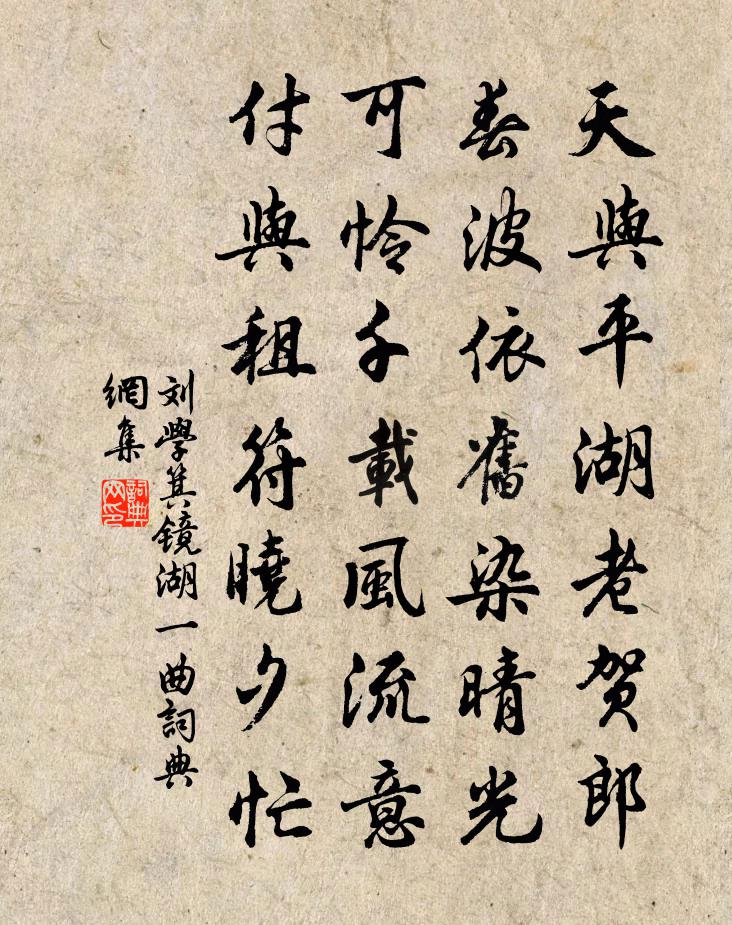 天與平湖老贺郎
春波依舊染晴光
可怜千載風流意
付與租符曉夕忙
刘學箕镜湖一曲詞典
網集
詞典网印